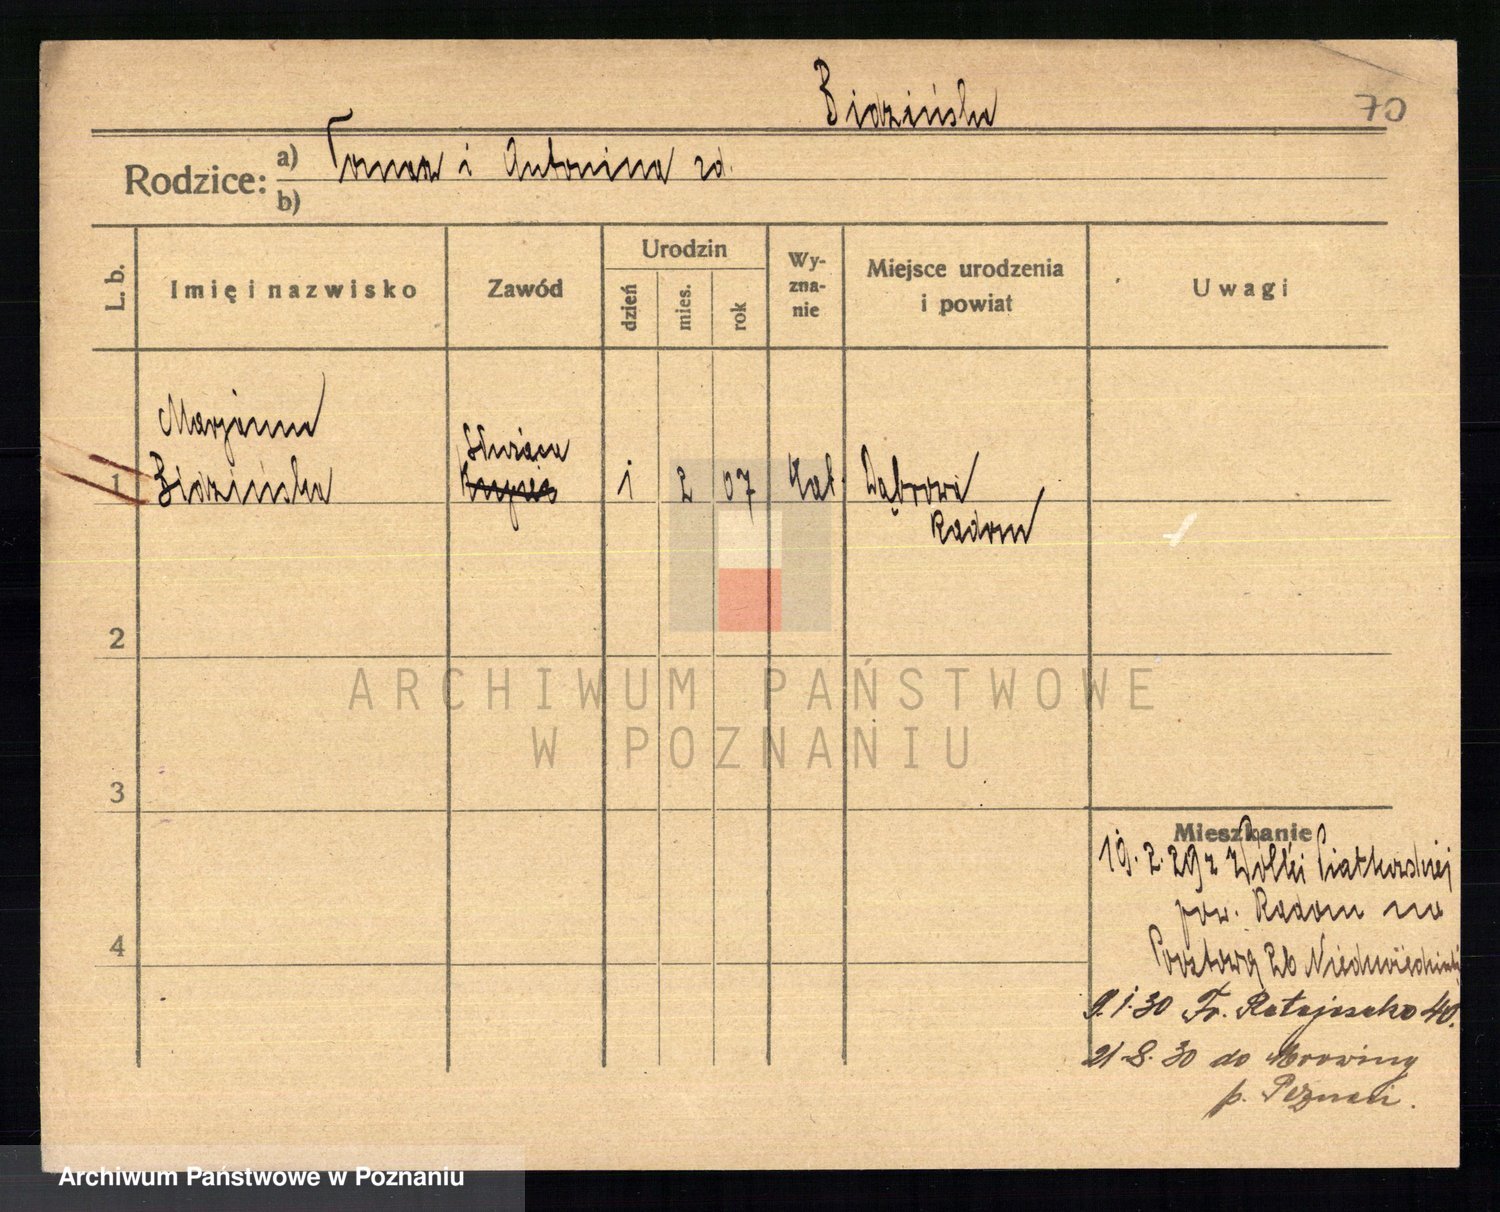 Bidzińska
70
Rodzice: a) Tomasz i Antonina zd.
b)
L. b.
Imię i nazwisko
Zawód
Urodzin
dzień
mies.
rok
Wy-
zna-
nie
Miejsce urodzenia
i powiat
Uwagi
Marjanna
Służąca
1 Bidzińska 1 2 07 Kat. Dąbrowa
Radom
2
ARCHIWUM PAŃSTWOWE
W POZNANIU
3
Mieszkanie
19.2.29 z Wólki
pow. Radom na
Pocztową 26
9.1.30 Fr. Ratajczaka 40.
21.8.30 do Mrowiny
p. Poznań.
4
Archiwum Państwowe w Poznaniu